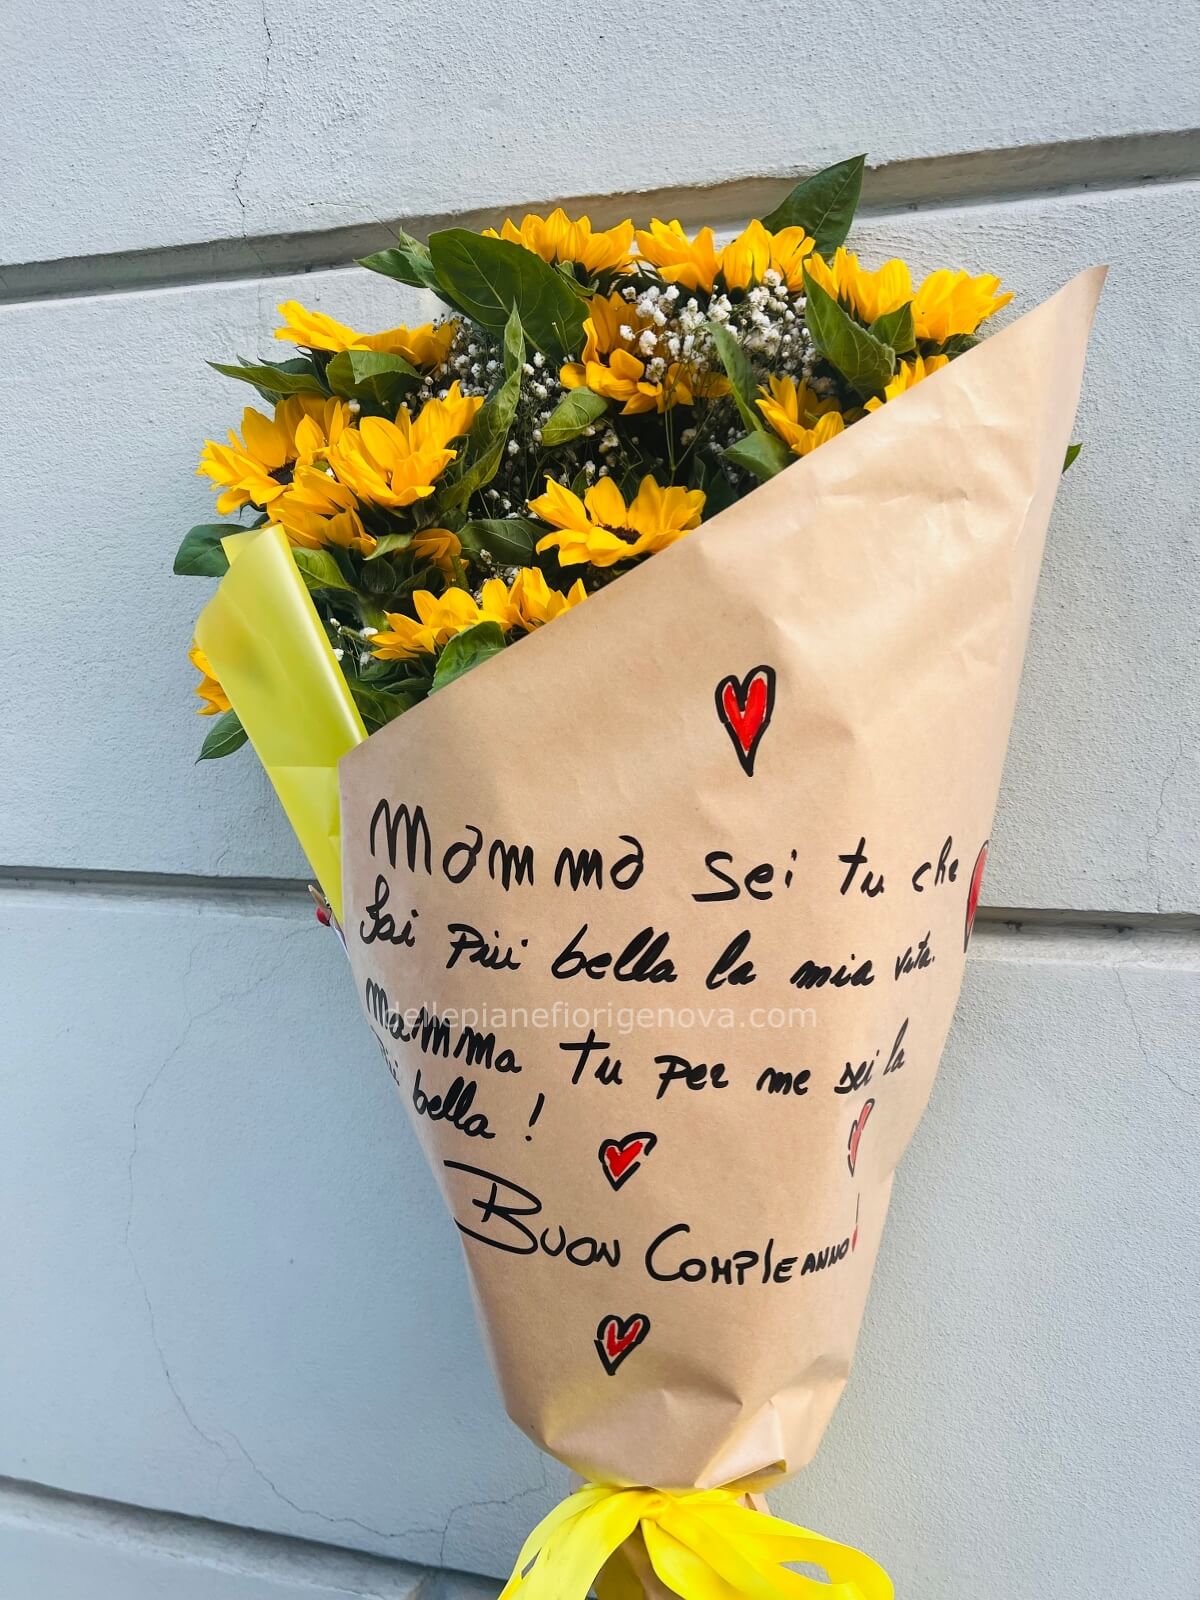 Mamma sei tu che
fai più bella la mia vita.
dellepianefiorigenova.com
Mamma tu per me sei la
più bella!
Buon Compleanno!